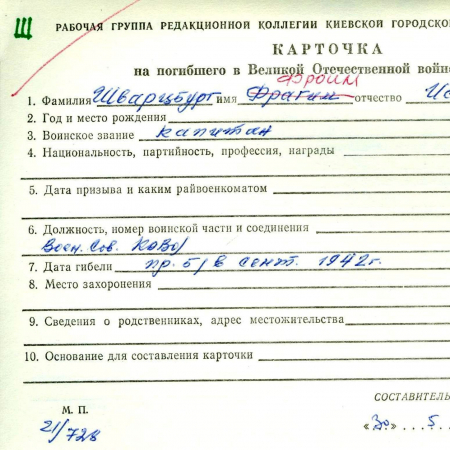 Ш
РАБОЧАЯ ГРУППА РЕДАКЦИОННОЙ КОЛЛЕГИИ КИЕВСКОЙ ГОРОДСКО
КАРТОЧКА
на погибшего в Великой Отечественной войне
Фроим
1. Фамилия Шварцбурт имя Фрагим отчество
2. Год и место рождения
3. Воинское звание капитан
4. Национальность, партийность, профессия, награды
5. Дата призыва и каким райвоенкоматом
6. Должность, номер воинской части и соединения
Воен. Сов. КОВО
7. Дата гибели пр. б/в сент. 1942г.
8. Место захоронения
9. Сведения о родственниках, адрес местожительства
10. Основание для составления карточки
СОСТАВИТЕЛЬ
М. П.
21/728
«30» 5